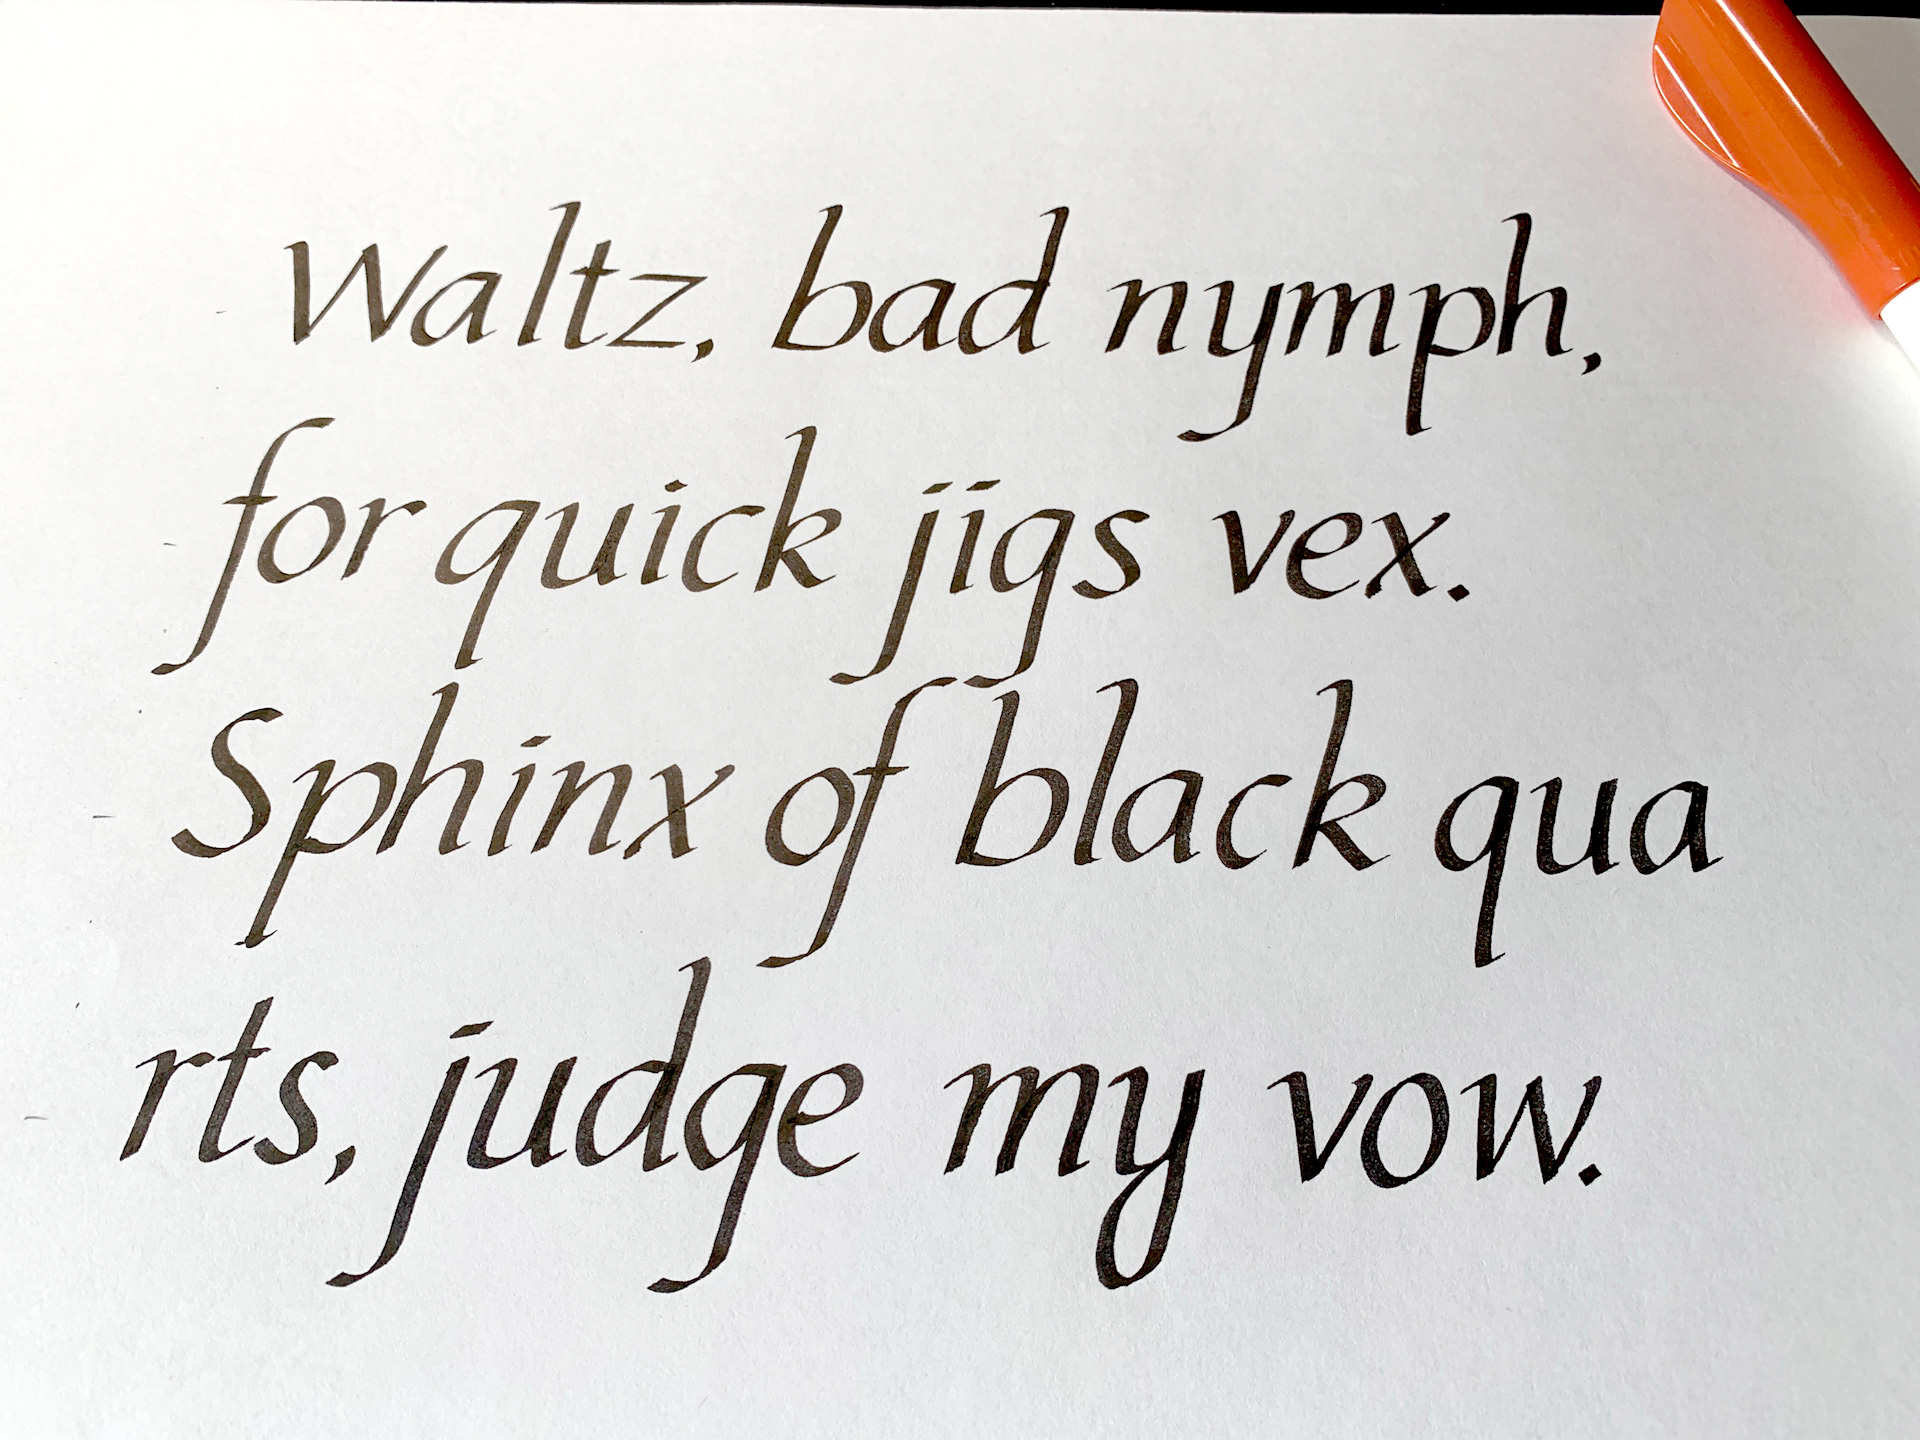 Waltz, bad nymph,
for quick jigs vex.
Sphinx of black qua
rts, judge my vow.